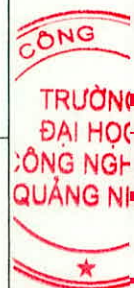 CÔNG
TRƯỜN
ĐẠI HỌC
CÔNG NGH
QUẢNG NI